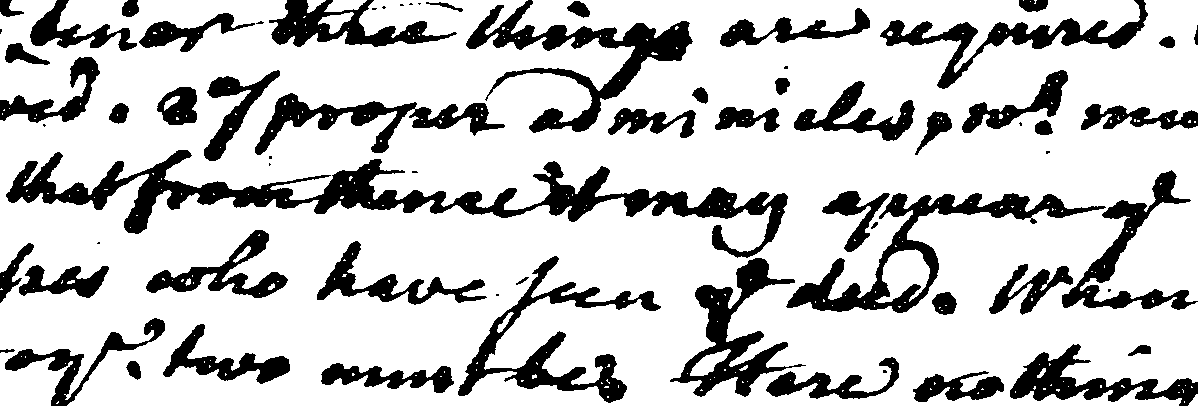 tenor three things are required.
ved. 2º/ proper adminicles, wh. mu
that from thence it may appear yt
ses who have seen yt deed. When
oyr. two must be. Here nothing